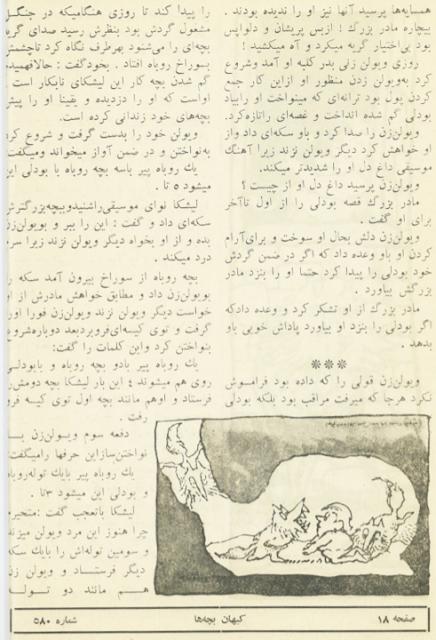 همسایه‌ها پرسید آنها نیز او را ندیده بودند .
بیچاره مادر بزرك ! از بس پریشان و دلواپس
بود بی‌اختیار گریه میکرد و آه میکشید !
روزی ویولن زنی بدر کلبه او آمد وشروع
کرد به‌ویولن زدن منظور او ازاین کار جمع
کردن پول بود ترانه‌ای که مینواخت او رابیاد
بودلی گم شده انداخت و غصه‌ای راتازه‌کرد.
ویولن‌زن را صدا کرد و باو سکه‌ای داد واز
او خواهش کرد دیگر ویولن نزند زیرا آهنگ
موسیقی داغ دل او را شدیدتر میکند.
ویولن‌زن پرسید داغ دل او از چیست ؟
مادر بزرك قصه بودلی را از اول تاآخر
برای او گفت .
ویولن‌زن دلش بحال او سوخت و برای‌آرام
کردن او باو وعده داد که اگر در ضمن گردش
خود بودلی را پیدا کرد حتما او را بنزد مادر
بزرگش بیاورد .
مادر بزرك از او تشکر کرد و وعده دادکه
اگر بودلی را بنزد او بیاورد پاداش خوبی باو
بدهد .
***
ویولن‌زن قولی را که داده بود فرامـوش
نکرد هرجا که میرفت مراقب بود بلکه بودلی
را پیدا کند تا روزی هنگامیکه در جنگـل
مشغول گردش بود بنظرش رسید صدای گریه
بچه‌ای را می‌شنود بهرطرف نگاه کرد تاچشمش
بسوراخ روباه افتاد . بخودگفت : حالافهمیدم
گم شدن بچه کار این لیشکای نابکار است .
اواست که او را دزدیده و یقینا او را پیش
بچه‌های خود زندانی کرده است.
ویولن خود را بدست گرفت و شروع کرد
به‌نواختن و در ضمن آواز میخواند ومیگفت:
یك روباه پیر باسه بچه روباه با بودلی این
میشود ۵ تا .
لیشکا نوای موسیقی‌راشنیدوببچه‌بزرگترش
سکه‌ای داد و گفت : این را ببر و بویولن‌زن
بده و از او بخواه دیگر ویولن نزند زیرا سرم
درد میکند .
بچه روباه از سوراخ بیرون آمد سکه را
بویولن‌زن داد و مطابق خواهش مادرش از او
خواست دیگر ویولن نزند ویولن‌زن فورا اورا
گرفت و توی کیسه‌ای‌فروبردبعد دوباره‌شروع
بنواختن کرد واین کلمات را گفت:
یك روباه پیر بادو بچه روباه و بابودلی
روی هم میشوند ۴ این بار لیشکا بچه دومش‌را
فرستاد و اوهم مانند بچه اول توی کیسه فرو
رفت .
دفعه سوم ویـولن‌زن بــا
نواختن‌سازاین حرفها رامیگفت:
یك روباه پیر بایك توله‌روباه
و بودلی این میشود ۳تا .
لیشکا باتعجب گفت :متحیرم
چرا هنوز این مرد ویولن میزند
و سومین توله‌اش را بایك سکه
دیگر فرستـــاد و ویولن زن
هـــم مانند دو تــولــه
صفحه ۱۸
کیهان بچه‌ها
شماره ۵۸۰